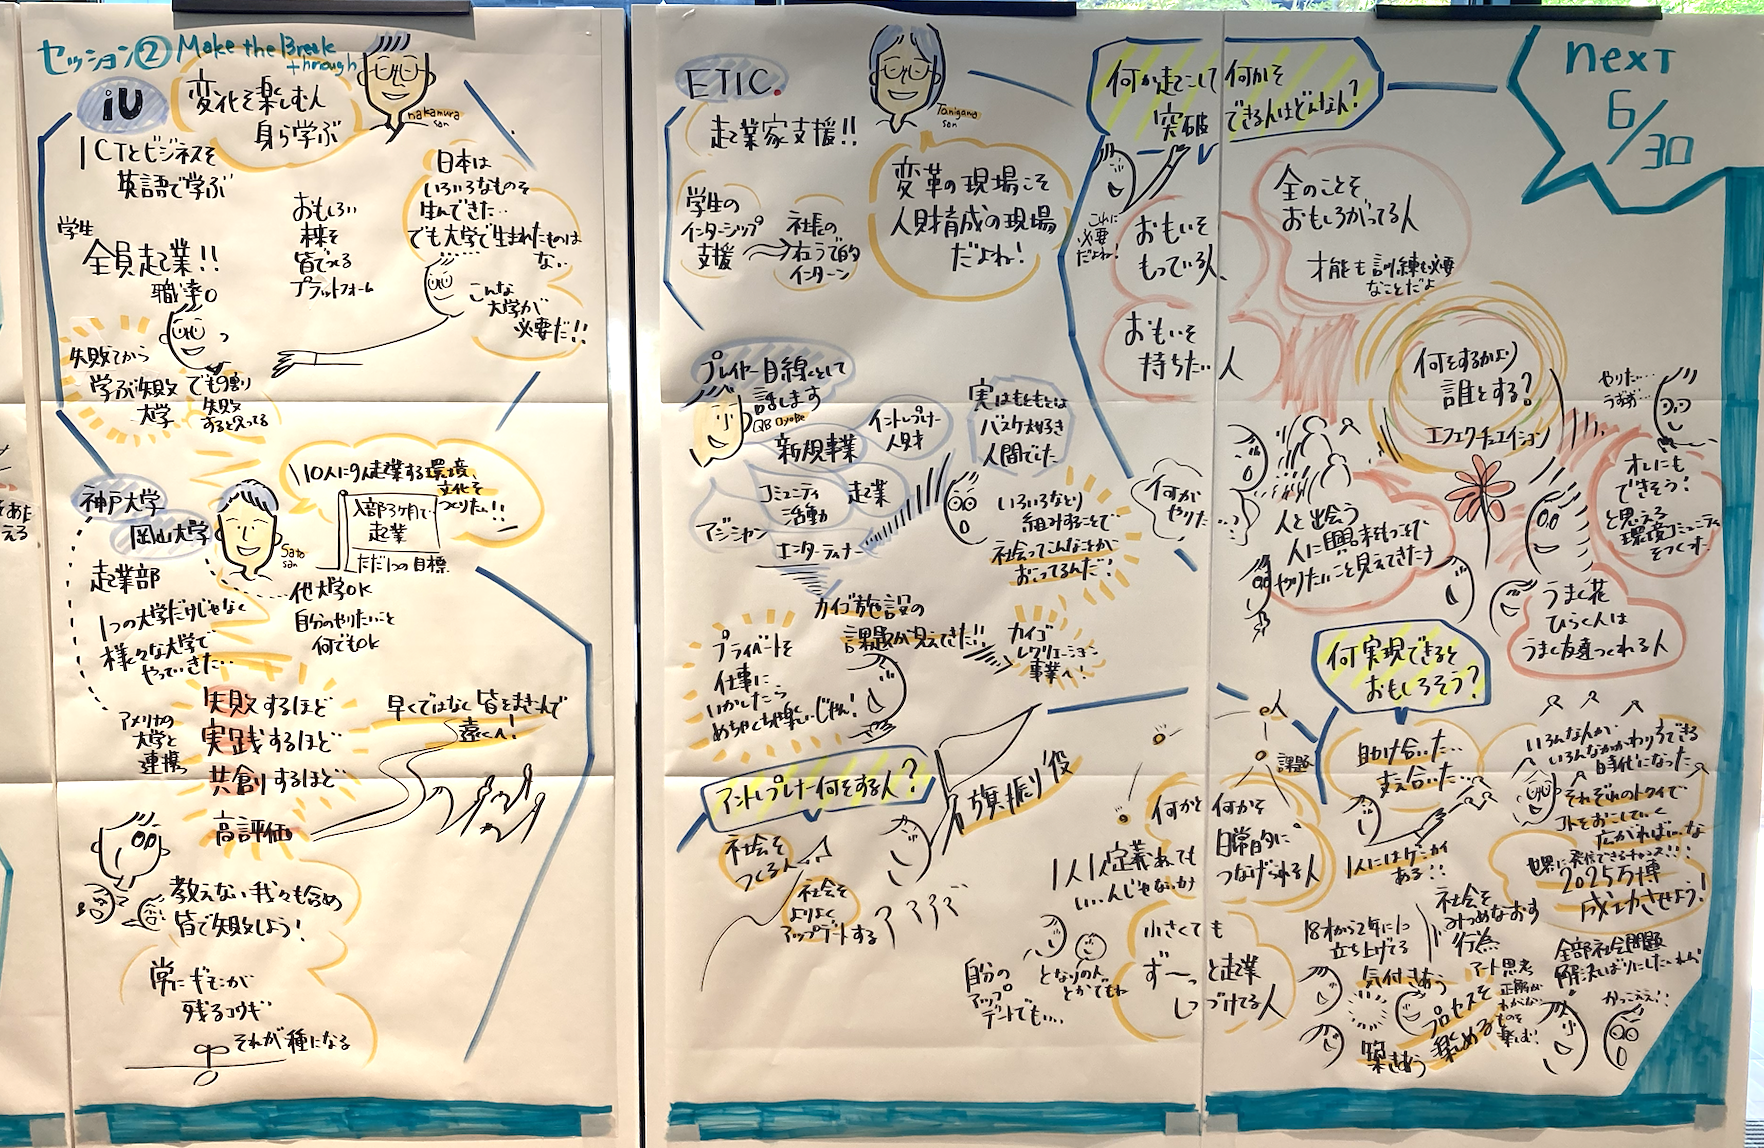 セッション② Make the Break
through
iU
変化を楽しむ人
身ら学ぶ
nakamura
san
ICTとビジネスを
英語で学ぶ
学生
全員起業!!
職率0
おもしろい
未来を
皆でつくる
プラットフォーム
日本は
いろいろなものを
生んできた..
でも大学で生まれたものは
ない..
こんな
大学が
必要だ!!
失敗てから
学ぶ失敗
大学
でも9割り
失敗
すると思ってる
神戸大学
岡山大学
Sato
san
\10人に9人起業する環境、
文化を
つくりたい!!
入部3ヶ月で
起業
ただ1つの目標
起業部
1つの大学だけじゃなく
様々な大学で
やっていきた..
他大学OK
自分のやりたいこと
何でもOK
アメリカの
大学と
連携
失敗するほど
実践するほど
共創するほど
高評価
早くではなく皆をまきこんで
遠くへ!
教えない我々も含め
皆で失敗しよう!
常にギモンが
残るコウギ
それが種になる
ETIC.
Tanigawa
san
起業家支援!!
学生の
インターンシップ
支援
社長の
右うで的
インターン
変革の現場こそ
人財育成の現場
だよね!
プレイヤー目線として
話します
QB
新規事業
イントレプレナー
人財
コミュニティ
活動
起業
マジシャン
エンターテイナー
実はもともとは
バスケ大好き
人間でした
いろいろなとり
組対することで
社会ってこんなことが
おこってるんだ!
カイゴ施設の
課題が見えてきた!!
カイゴ
レクリエーション
事業へ!
プライベートを
仕事に
いかしたら
めちゃくちゃ楽しいじゃん!
アントレプレナー何をする人?
旗振り役
社会を
つくる人
社会を
よりよく
アップデートする
1人1人定義あっても
い...んじゃないか
自分の
アップ
デートでも...
となりの人
とかでもね
何かと
何かを
日常的に
つなげられる人
課題
小さくても
ず〜っと起業
しつづけてる人
何か起こして
突破
何かを
できる人はどんな人?
これに
必要
だよね!
おもいを
もっている人
おもいを
持ちたい人
全のことを
おもしろがってる人
才能も訓練も必要
なことだよ
何をするかより
誰とする?
エフェクチュエイション
やりたい...
うずうず...
何が
やりた
...?
人と出会う
人に興味もつことで
やりたいこと見えてきたナ
オレにも
できそう!
と思える
環境コミュニティ
をつくった
うまく花
ひらく人は
うまく友達つくれる人
何実現できると
おもしろそう?
助け合いた..
支え合いた..
1人にはゲンカイ
ある!!
いろんな人が
いろんなかかわりできる
時代になった
それぞれのトクイで
コトをおこしていく
広がれば...な
世界に発信できるチャンス!!!
2025万博
成功させよう!
18才から2年に1つ
立ち上げてる
社会を
みつめなおす
行為
気付きあう
アート思考
正解が
わからない
ものを
楽しむ!
プロセスを
楽める
築きあう
全部社会問題
解決ばりにしたいねんが
かっこええ!!
next
6/30